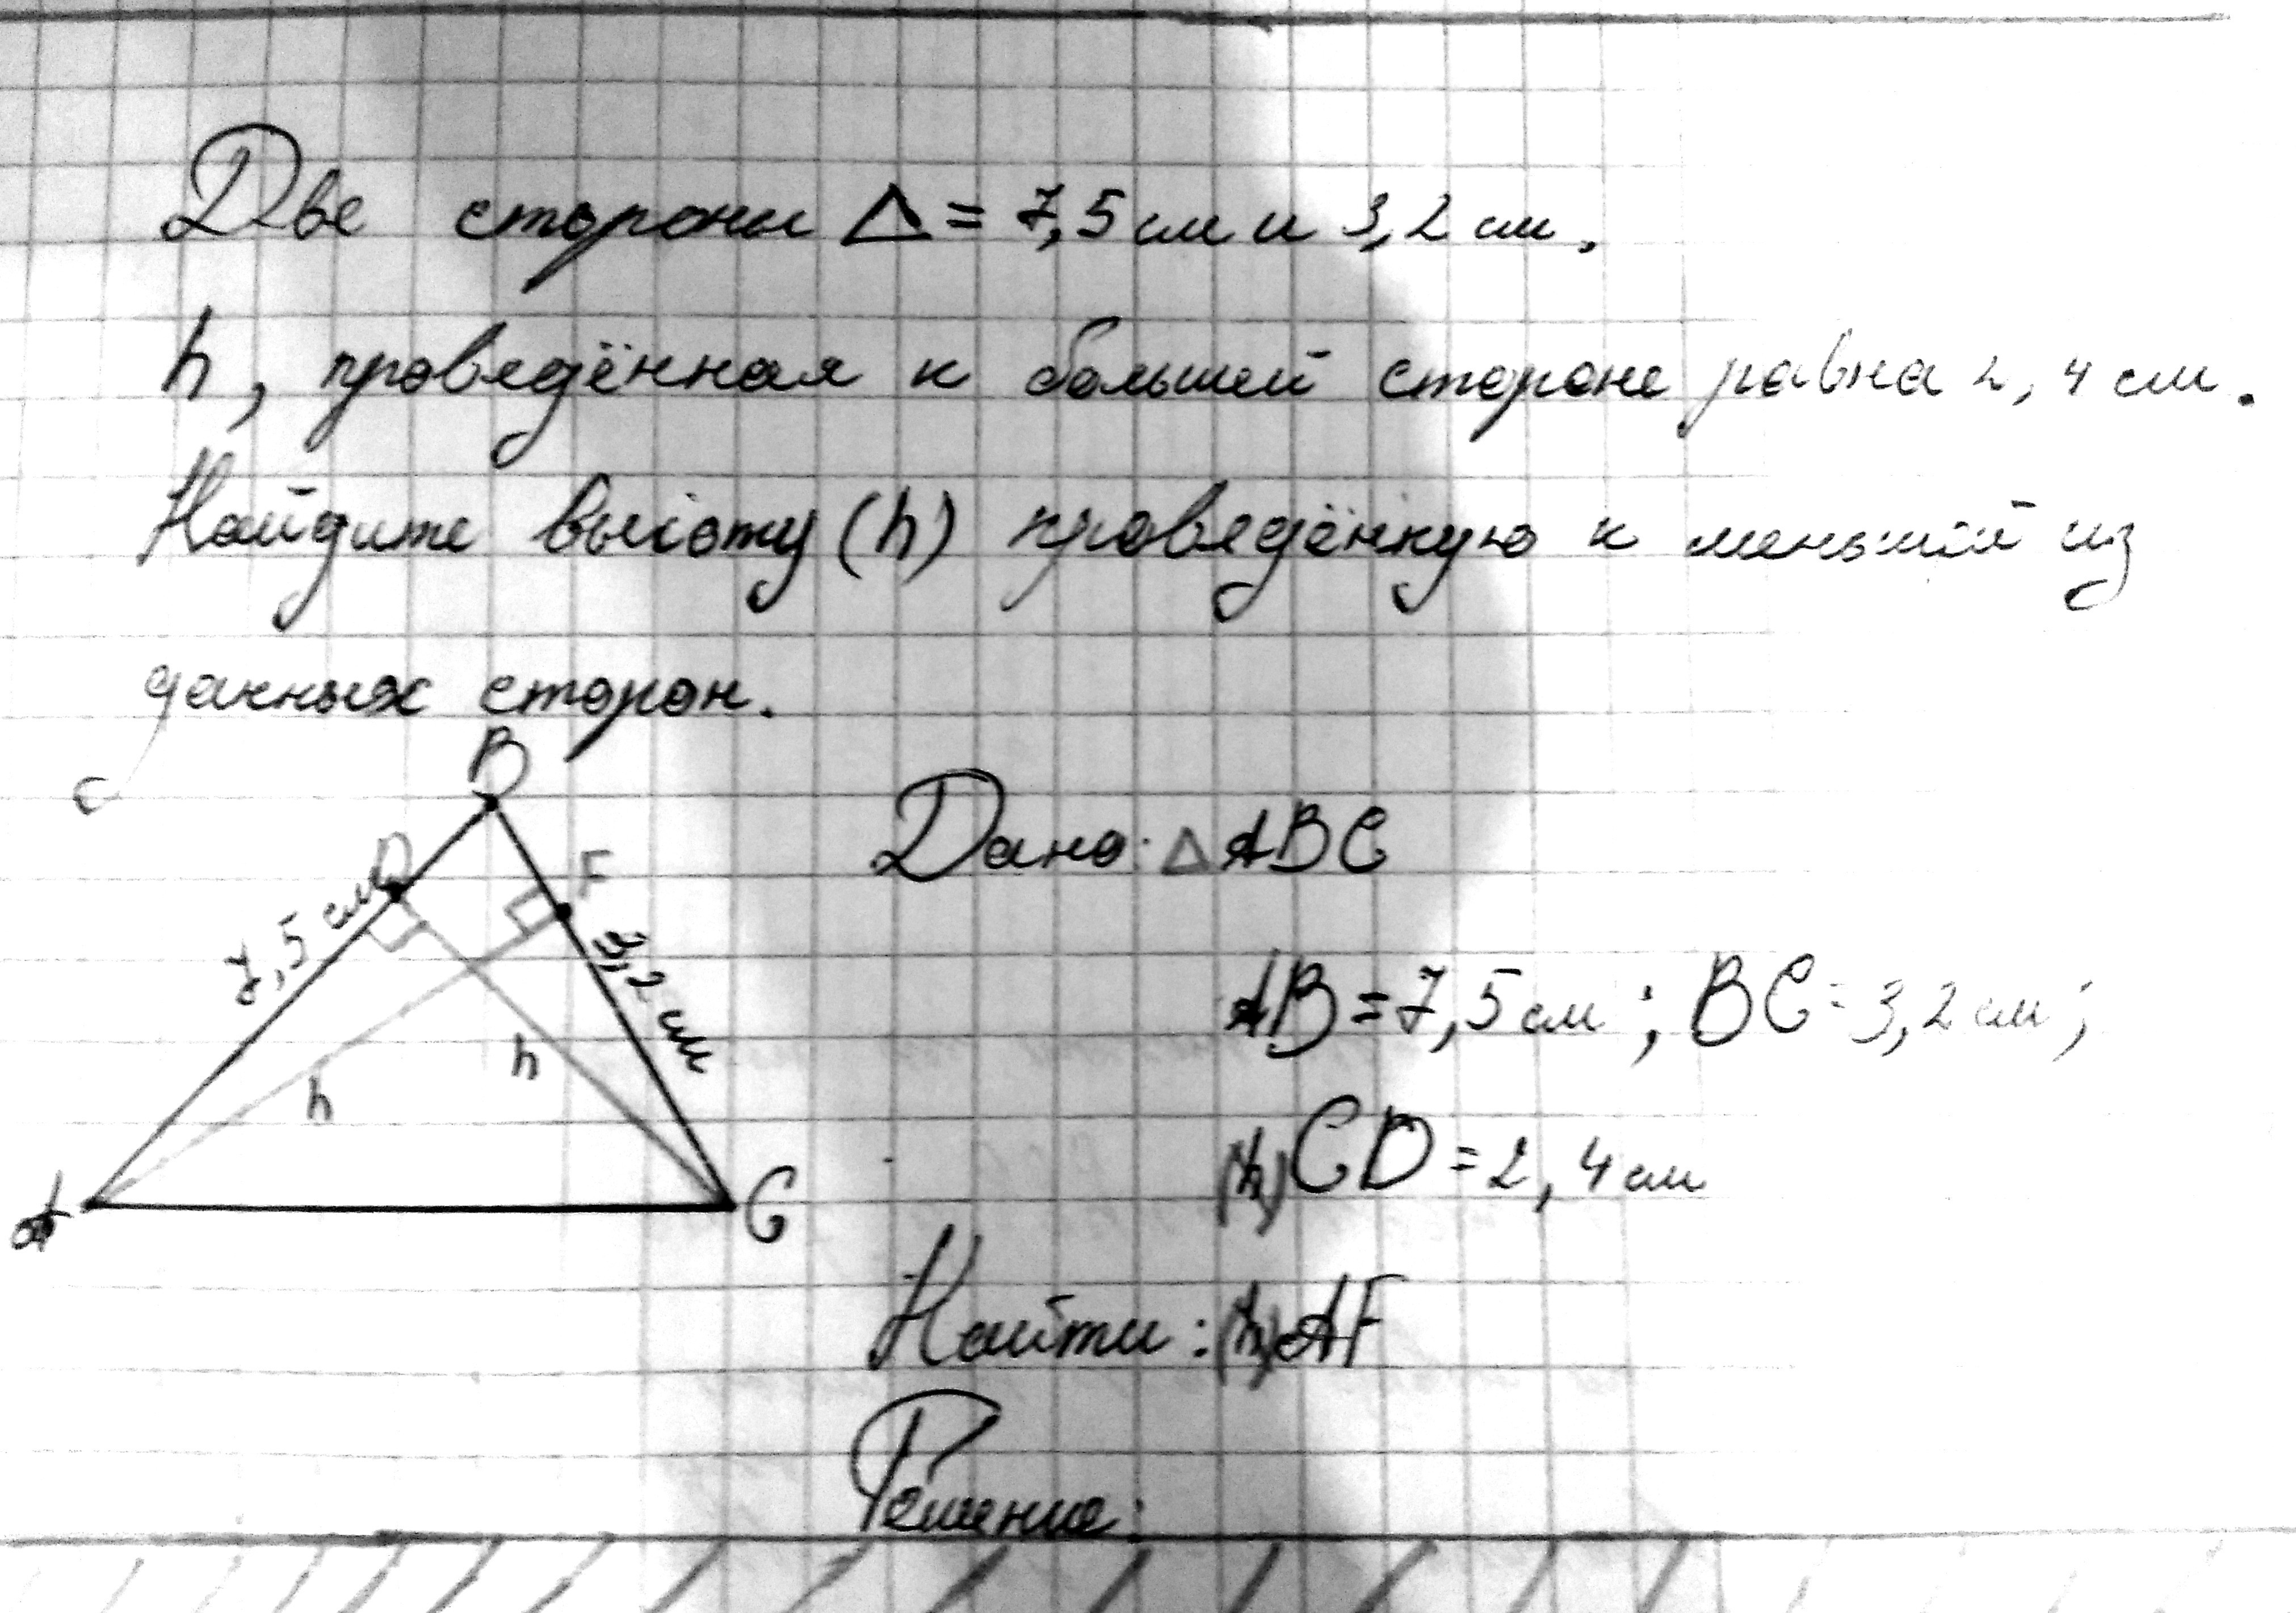 Две стороны △ = 7,5 см и 3,2 см.
h, проведённая к большей стороне равна 2,4 см.
Найдите высоту (h) проведённую к меньшей из
данных сторон.
B
D
F
7,5 см
3,2 см
h
h
A
C
Дано: △ABC
AB = 7,5 см ; BC = 3,2 см ;
(h) CD = 2,4 см
Найти: (h) AF
Решение: